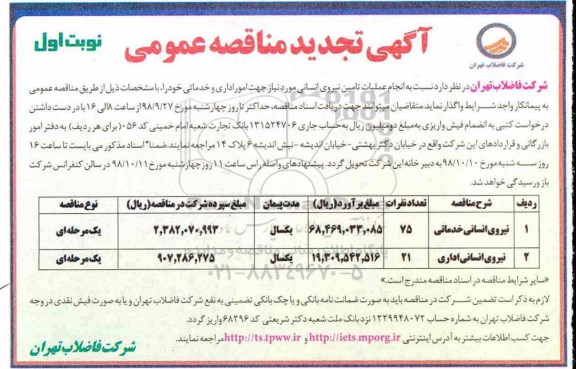 آگهی تجدید مناقصه عمومی
نوبت اول
شرکت فاضلاب تهران
شرکت فاضلاب تهران در نظر دارد نسبت به انجام عملیات تامین نیروی انسانی مورد نیاز جهت امور اداری و خدماتی خود را، با مشخصات ذیل از طریق مناقصه عمومی
به پیمانکار واجد شرایط واگذار نماید. متقاضیان میتوانند جهت دریافت اسناد مناقصه، حداکثر تا روز چهارشنبه مورخ ۹۸/۹/۲۷ از ساعت ۸ الی ۱۶ با در دست داشتن
درخواست کتبی به انضمام فیش واریزی به مبلغ دو میلیون ریال به حساب جاری ۱۳۱۵۲۴۷۰۶ بانک تجارت شعبه امام خمینی کد ۰۵۶ (برای هر ردیف) به دفتر امور
بازرگانی و قراردادهای این شرکت واقع در خیابان دکتر بهشتی - خیابان اندیشه - نبش اندیشه ۶ پلاک ۱۴ مراجعه نمایند. ضمنا" اسناد مذکور می بایست تا ساعت ۱۶
روز سه شنبه مورخ ۹۸/۱۰/۱۰ به دبیرخانه این شرکت تحویل گردد. پیشنهادهای واصله راس ساعت ۱۱ روز چهارشنبه مورخ ۹۸/۱۰/۱۱ در سالن کنفرانس شرکت
باز و رسیدگی خواهد شد.
ردیف شرح مناقصه تعداد نفرات مبلغ برآورد (ریال) مدت پیمان مبلغ سپرده شرکت در مناقصه (ریال) نوع مناقصه
۱ نیروی انسانی خدماتی ۷۵ ۶۸,۴۶۹,۰۳۳,۰۸۵ یکسال ۲,۳۸۲,۰۷۰,۹۹۳ یک مرحله ای
۲ نیروی انسانی اداری ۲۱ ۱۹,۳۰۹,۵۴۲,۵۱۶ یکسال ۹۰۷,۲۸۶,۲۷۵ یک مرحله ای
۰۲۱-۸۸۳۴۹۶۷۰-۵
«سایر شرایط مناقصه در اسناد مناقصه مندرج است.»
لازم به ذکر است تضمین شرکت در مناقصه باید به صورت ضمانت نامه بانکی و یا چک بانکی تضمینی به نفع شرکت فاضلاب تهران و یا به صورت فیش نقدی در وجه
شرکت فاضلاب تهران به شماره حساب ۱۲۲۹۹۴۸۰۷۲ نزد بانک ملت شعبه دکتر شریعتی کد ۶۸۲۹۶ واریز گردد.
جهت کسب اطلاعات بیشتر به آدرس اینترنتی http://iets.mporg.ir و http://ts.tpww.ir مراجعه نمایند.
شرکت فاضلاب تهران